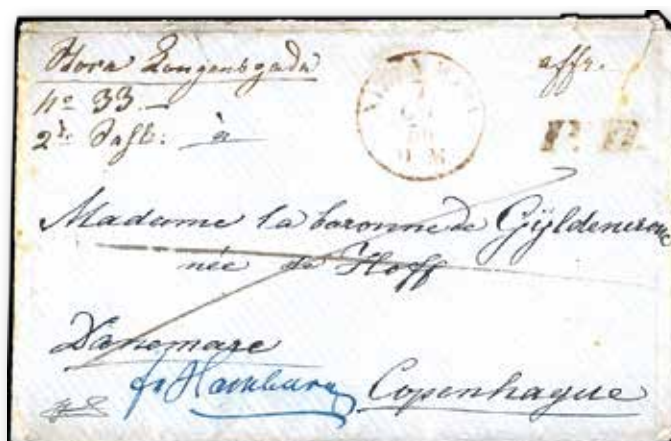 Stora Kongensgada affr.
No 33.
2den Sahl: à
Madame la baronne de Gÿldencrone
née de Hoff
Danemarc
fr Hamburg Copenhague